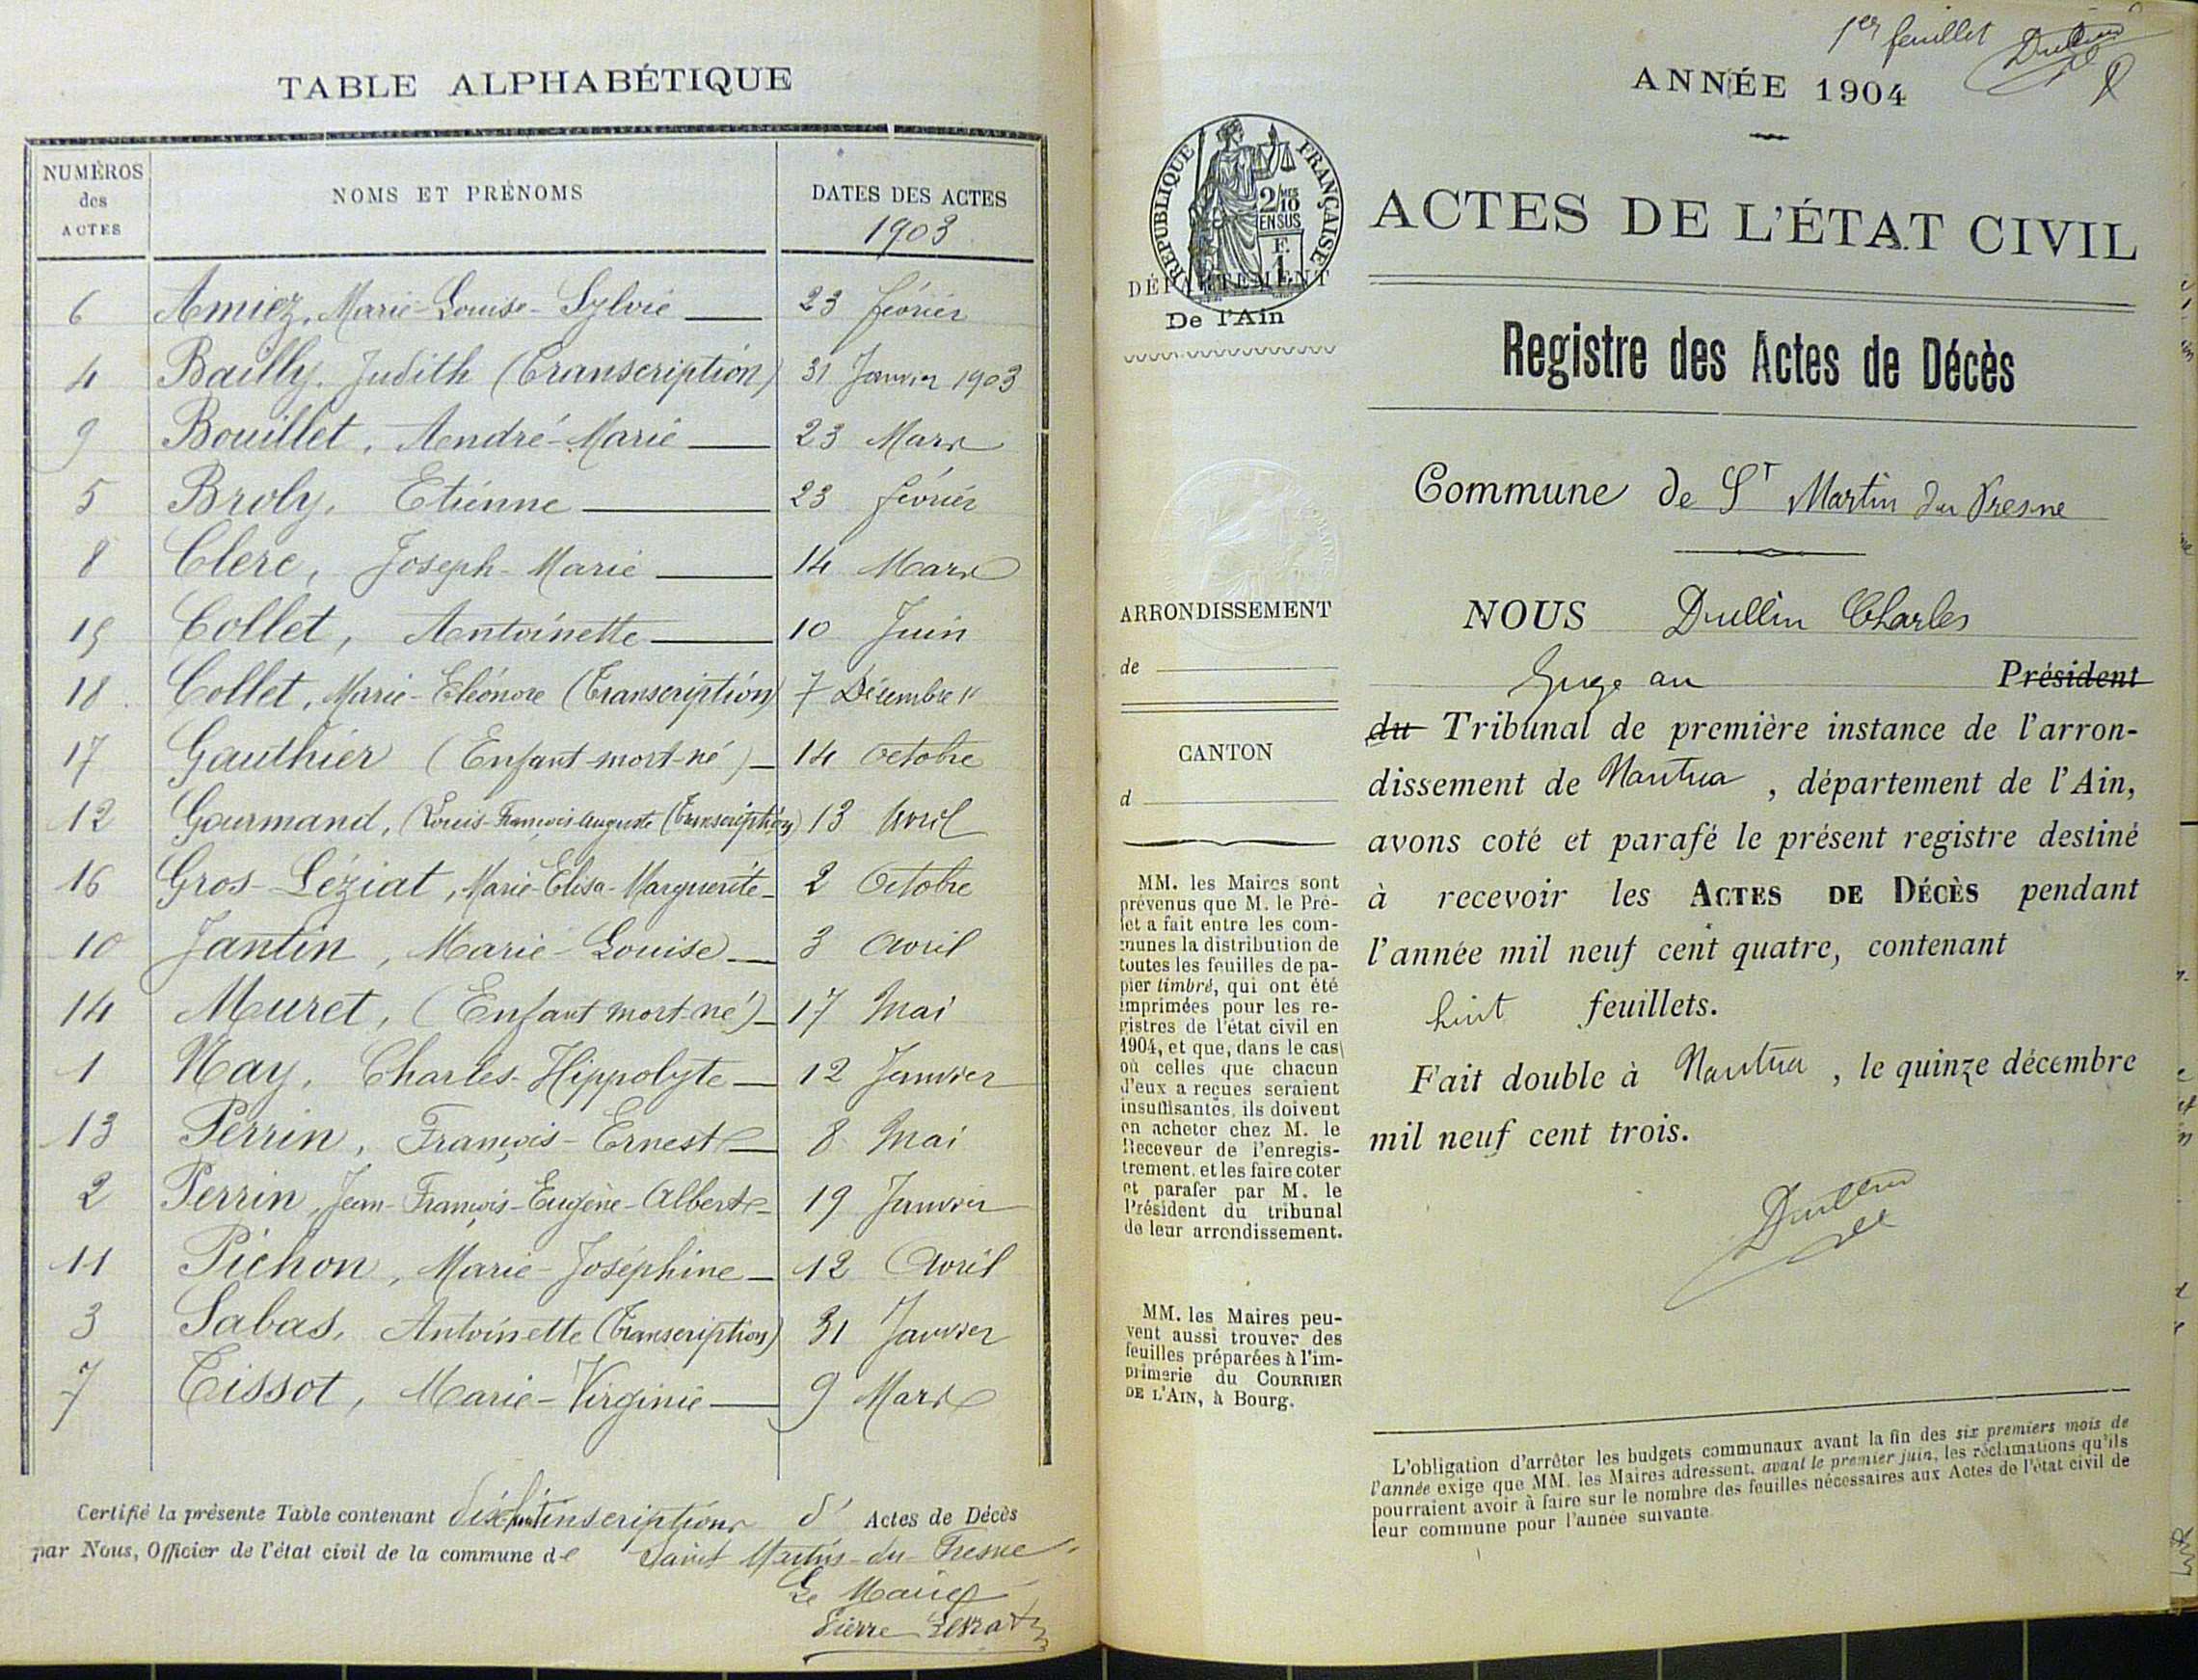 TABLE ALPHABÉTIQUE
NUMÉROS des ACTES NOMS ET PRÉNOMS DATES DES ACTES
1903
6 Amiez, Marie-Louise-Sylvie 23 février
4 Bailly, Judith (Transcription) 31 Janvier 1903
9 Bouillet, André-Marie 23 Mars
5 Broly, Etienne 23 février
8 Clerc, Joseph-Marie 14 Mars
15 Collet, Antoinette 10 Juin
18 Collet, Marie-Eléonore (Transcription) 7 Décembre "
17 Gauthier (Enfant mort-né) 14 Octobre
12 Gourmand, (Louis-François-Auguste (Transcription) 13 Avril
16 Gros-Léziat, Marie-Elisa-Marguerite 2 Octobre
10 Jantin, Marie-Louise 3 Avril
14 Muret, (Enfant mort-né) 17 Mai
1 Nay, Charles-Hippolyte 12 Janvier
13 Perrin, François-Ernest 8 Mai
2 Perrin, Jean-François-Eugène-Albert 19 Janvier
11 Pichon, Marie-Joséphine 12 Avril
3 Sabas, Antoinette (Transcription) 31 Janvier
7 Tissot, Marie-Virginie 9 Mars
Certifié la présente Table contenant dix-huit inscriptions d' Actes de Décès
par Nous, Officier de l'état civil de la commune de Saint Martin-du-Fresne
Le Maire
Pierre
1er feuillet Dullin
ANNÉE 1904
RÉPUBLIQUE FRANÇAISE
2/10 MES
EN SUS
F.
1
ACTES DE L'ÉTAT CIVIL
DÉPARTEMENT
De l'Ain
Registre des Actes de Décès
Commune de St Martin du Fresne
ARRONDISSEMENT
de
CANTON
d
MM. les Maires sont
prévenus que M. le Pré-
fet a fait entre les com-
munes la distribution de
toutes les feuilles de pa-
pier timbré, qui ont été
imprimées pour les re-
gistres de l'état civil en
1904, et que, dans le cas
où celles que chacun
d'eux a reçues seraient
insuffisantes, ils doivent
en acheter chez M. le
Receveur de l'enregis-
trement, et les faire coter
et parafer par M. le
Président du tribunal
de leur arrondissement.
MM. les Maires peu-
vent aussi trouver des
feuilles préparées à l'im-
primerie du COURRIER
DE L'AIN, à Bourg.
NOUS Dullin Charles
Juge au Président
du Tribunal de première instance de l'arron-
dissement de Nantua, département de l'Ain,
avons coté et parafé le présent registre destiné
à recevoir les ACTES DE DÉCÈS pendant
l'année mil neuf cent quatre, contenant
huit feuillets.
Fait double à Nantua, le quinze décembre
mil neuf cent trois.
Dullin
L'obligation d'arrêter les budgets communaux avant la fin des six premiers mois de
l'année exige que MM. les Maires adressent, avant le premier juin, les réclamations qu'ils
pourraient avoir à faire sur le nombre des feuilles nécessaires aux Actes de l'état civil de
leur commune pour l'année suivante.